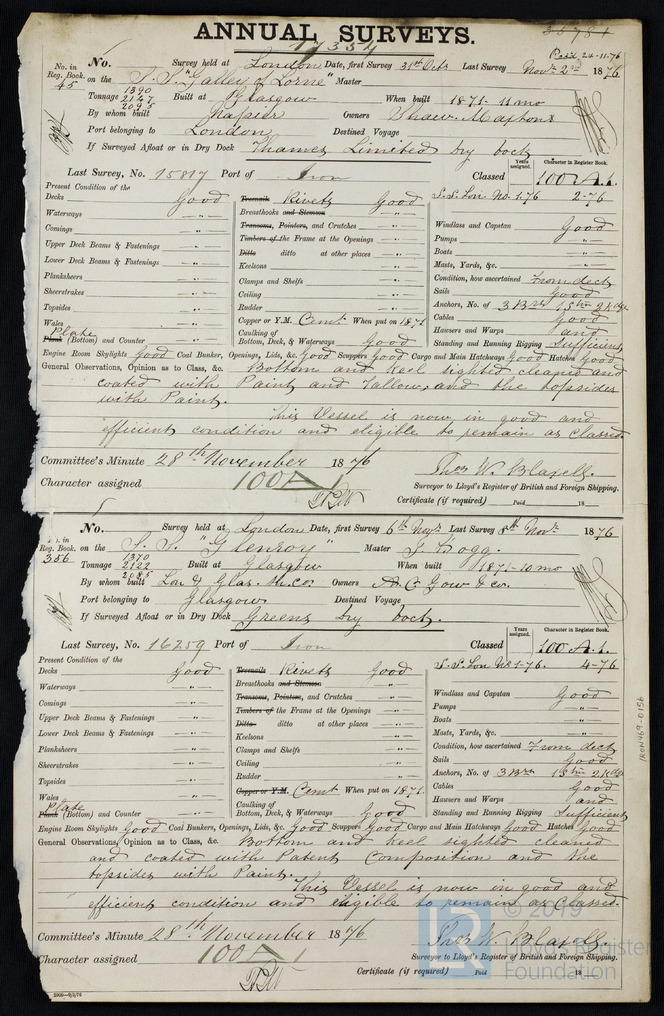 ANNUAL SURVEYS.
17354
Paid 24-11-76
No. in Reg. Book. 45
No. Survey held at London Date, first Survey 31st Octr Last Survey Novr 2nd 1876
on the S.S. "Galley of Lorne" Master
Tonnage 1390 2147 2095 Built at Glasgow When built 1871-11mo
By whom built Napier Owners Shaw. Maxtons
Port belonging to London Destined Voyage
If Surveyed Afloat or in Dry Dock Thames Limited Dry Dock
Last Survey, No. 15817 Port of Iron Classed Years assigned. Character in Register Book. 100 A.1.
S.S. Lon No. 1.76 2-76
Present Condition of the
Decks Good Treenails Rivets Good
Waterways -"- Breasthooks and Stemson -"- Windlass and Capstan Good
Comings -"- Transoms, Pointers, and Crutches -"- Pumps -"-
Upper Deck Beams & Fastenings -"- Timbers of the Frame at the Openings -"- Boats -"-
Lower Deck Beams & Fastenings -"- Ditto ditto at other places -"- Masts, Yards, &c. -"-
Planksheers -"- Keelsons -"- Condition, how ascertained From deck
Sheerstrakes -"- Clamps and Shelfs -"- Sails Good
Topsides -"- Ceiling -"- Anchors, No. of 3 Brs 1 Stm 2 Kdgs
Wales -"- Rudder -"- Cables Good
Plate Plank (Bottom) and Counter -"- Copper or Y.M. Cemt. When put on 1871 Hawsers and Warps and
Caulking of Bottom, Deck, & Waterways Good Standing and Running Rigging Sufficient
Engine Room Skylights Good Coal Bunker, Openings, Lids, &c. Good Scuppers Good Cargo and Main Hatchways Good Hatches Good
General Observations, Opinion as to Class, &c. Bottom and Keel sighted cleaned and
coated with Paint and Tallow, and the topsides
with Paint.
This Vessel is now in good and
efficient condition and eligible to remain as Classed.
Committee's Minute 28th November 1876
Character assigned 100 A 1
Thos W. Blaxell.
Surveyor to Lloyd's Register of British and Foreign Shipping.
Certificate (if required) Paid 18
No. in Reg. Book. 356
No. Survey held at London Date, first Survey 6th Novr Last Survey 8th Novr 1876
on the S.S. "Glenroy" Master J Hogg.
Tonnage 1370 2122 2085 Built at Glasgow When built 1871-10mo
By whom built Lon & Glas. Co. Owners A C Gow & Co.
Port belonging to Glasgow Destined Voyage
If Surveyed Afloat or in Dry Dock Greens Dry Dock.
Last Survey, No. 16259 Port of Iron Classed Years assigned. Character in Register Book. 100 A.1.
S.S. Lon No 1-76. 4-76
Present Condition of the
Decks Good Treenails Rivets Good
Waterways -"- Breasthooks and Stemson -"- Windlass and Capstan Good
Comings -"- Transoms, Pointers, and Crutches -"- Pumps -"-
Upper Deck Beams & Fastenings -"- Timbers of the Frame at the Openings -"- Boats -"-
Lower Deck Beams & Fastenings -"- Ditto ditto at other places -"- Masts, Yards, &c. -"-
Planksheers -"- Keelsons -"- Condition, how ascertained From deck
Sheerstrakes -"- Clamps and Shelfs -"- Sails Good
Topsides -"- Ceiling -"- Anchors, No. of 3 Brs 1 Stm 2 Kdgs
Wales -"- Rudder -"- Cables Good
Plate Plank (Bottom) and Counter -"- Copper or Y.M. Cemt. When put on 1871. Hawsers and Warps and
Caulking of Bottom, Deck, & Waterways Good Standing and Running Rigging Sufficient
Engine Room Skylights Good Coal Bunkers, Openings, Lids, &c. Good Scuppers Good Cargo and Main Hatchways Good Hatches Good
General Observations, Opinion as to Class, &c. Bottom and Keel sighted cleaned
and coated with Patent Composition and the
topsides with Paint.
This Vessel is now in good and
efficient condition and eligible to remain as Classed.
Committee's Minute 28th November 1876
Character assigned 100 A 1
Thos W. Blaxell.
Surveyor to Lloyd's Register of British and Foreign Shipping.
Certificate (if required) Paid 18
IRON469-0156
© 2019
Lloyd's Register
Foundation